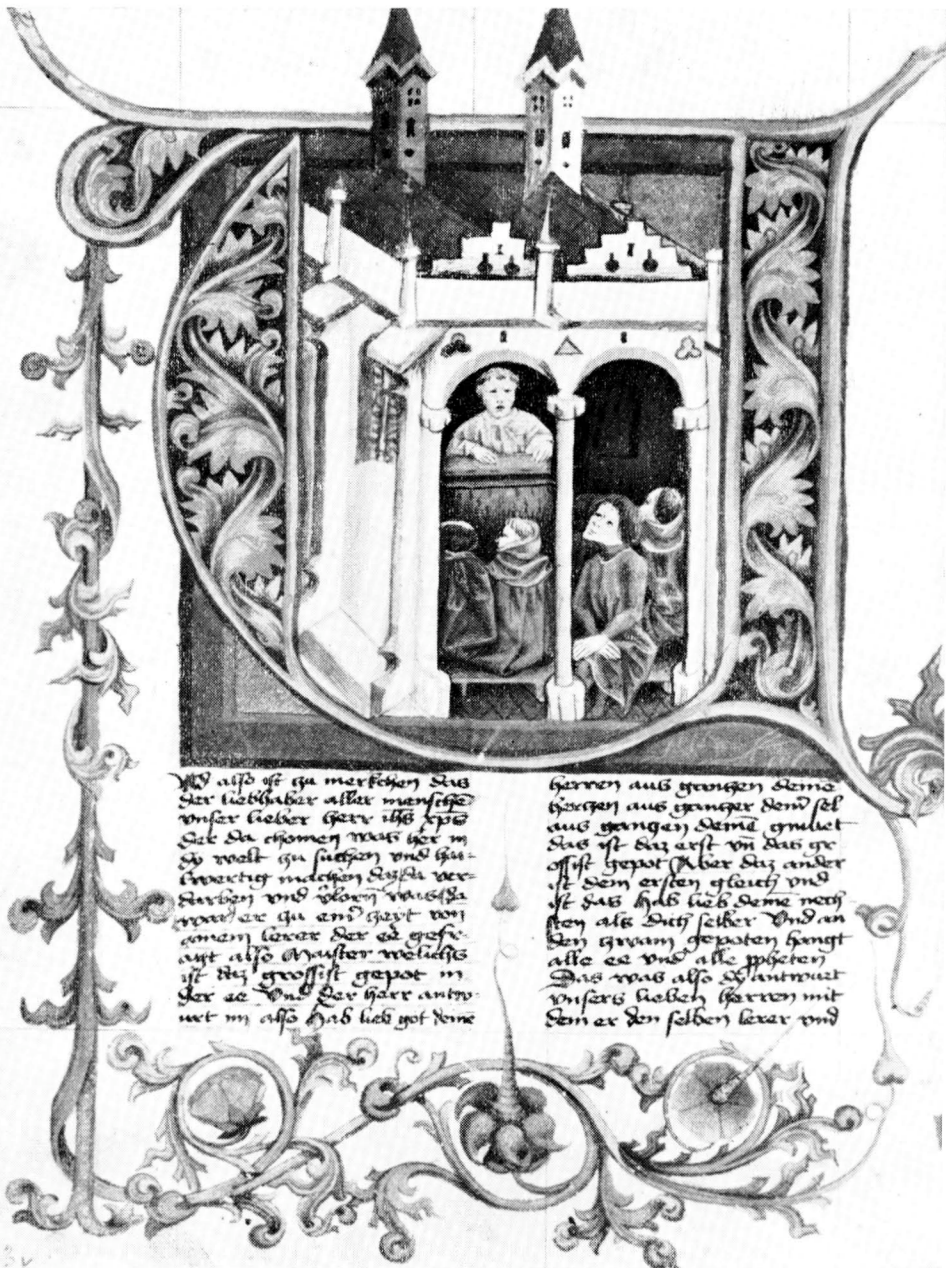 also ist zu merkchen das
der liebhaber aller mensche
vnser lieber herr ihs xps
der da chomen was her in
dy welt zu suchen vnd hail-
wertig machen daz da ver-
darben vnd vlorn was da
wart er zu eim zeyt von
ainem lerer der ee gefr-
agt also Maister welichs
ist daz grossist gepot in
der ee Vnd der herr antw-
urt im also Hab lieb got deine
herren aus gantzen deinē
hertzen aus gantzer deinr sel
aus gantzen deinē gmuet
das ist daz erst vn̄ das gr-
ossist gepot Aber daz ander
ist dem ersten gleich vnd
ist das Hab lieb deine nech-
sten als dich selber Vnd an
den zwain gepoten hangt
alle ee vnd alle ppheten
Das was also dy antwurt
vnsers lieben herren mit
dem er den selben lerer vnd